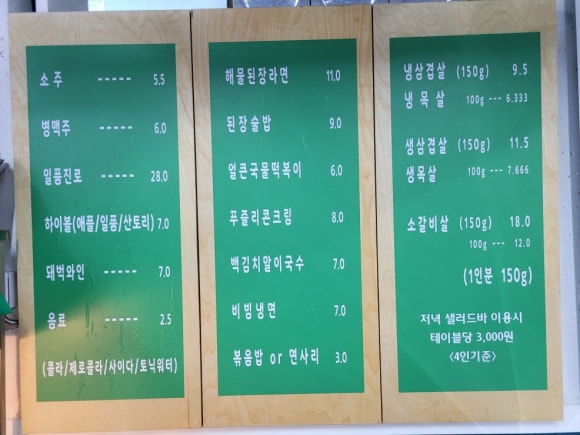 소주 ----- 5.5
병맥주 ----- 6.0
일품진로 ----- 28.0
하이볼(애플/일품/산토리) 7.0
돼벅와인 ----- 7.0
음료 ----- 2.5
(콜라/제로콜라/사이다/토닉워터)
해물된장라면 11.0
된장술밥 9.0
얼큰국물떡볶이 6.0
푸줄리콘크림 8.0
백김치말이국수 7.0
비빔냉면 7.0
볶음밥 or 면사리 3.0
냉삼겹살 (150g) 9.5
냉목살 100g --- 6.333
생삼겹살 (150g) 11.5
생목살 100g --- 7.666
소갈비살 (150g) 18.0
100g --- 12.0
(1인분 150g)
저녁 샐러드바 이용시
테이블당 3,000원
<4인기준>